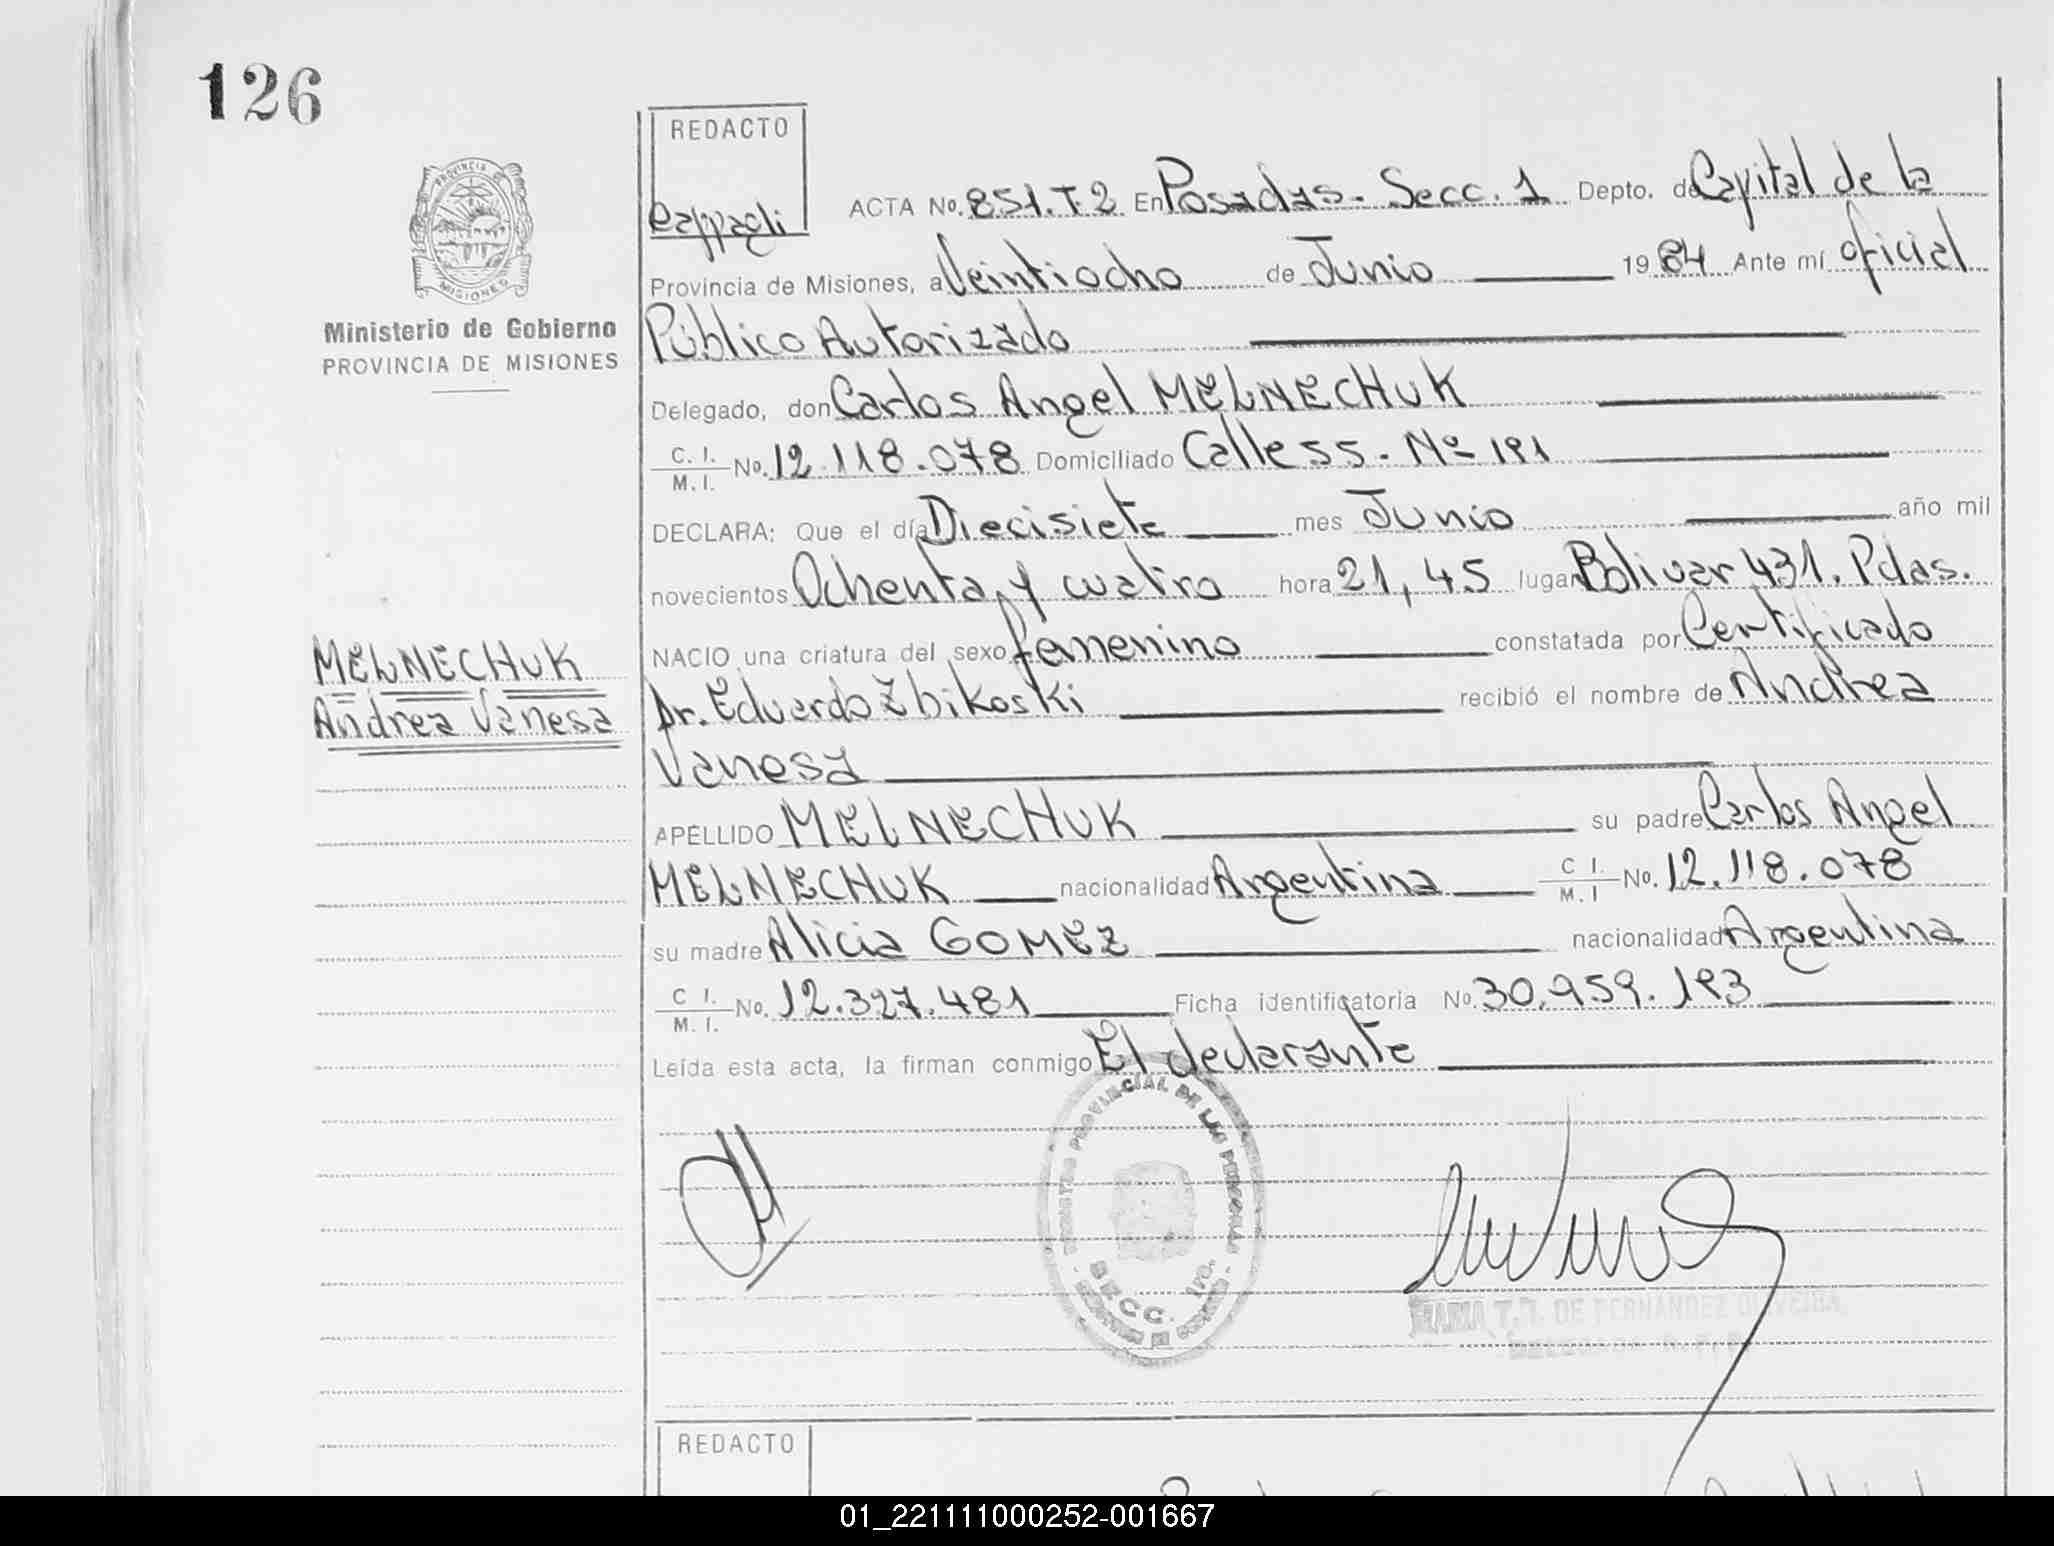 126
REDACTO
Cappagli
ACTA No. 851.T.2 En Posadas - Secc. 1 Depto. de Capital de la
Provincia de Misiones, a Veintiocho de Junio 1984 Ante mí oficial
Público Autorizado
Delegado, don Carlos Angel MELNECHUK
C. I. / M. I. No. 12.118.078 Domiciliado Calle 55 - Nº 191
DECLARA: Que el día Diecisiete mes Junio año mil
novecientos Ochenta y cuatro hora 21,45 lugar Bolivar 431. Pdas.
NACIO una criatura del sexo femenino constatada por Certificado
Dr. Eduardo Zbikoski recibió el nombre de Andrea
Vanesa
APELLIDO MELNECHUK su padre Carlos Angel
MELNECHUK nacionalidad Argentina C I. / M. I No. 12.118.078
su madre Alicia GOMEZ nacionalidad Argentina
C I. / M. I. No. 12.327.481 Ficha identificatoria No. 30.959.193
Leída esta acta, la firman conmigo El declarante
Ministerio de Gobierno
PROVINCIA DE MISIONES
PROVINCIA DE
MISIONES
MELNECHUK
Andrea Vanesa
REGISTRO PROVINCIAL DE LAS PERSONAS
SECC. 1ra.
MARIA T. DE FERNANDEZ OLIVEIRA
REDACTO
01_221111000252-001667